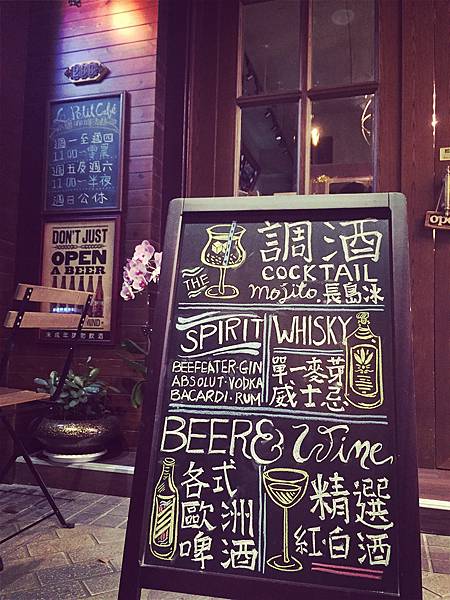 Le Petit Café
週一至週四
週五及週六
11:00-半夜
週日公休
DON'T JUST
OPEN
A BEER
MIND
未成年請勿飲酒
調酒
THE
COCKTAIL
Mojito.長島冰
SPIRIT
BEEFEATER·GIN
ABSOLUT·VODKA
BACARDI·RUM
WHISKY
單一麥芽
威士忌
BEER & Wine
各式
歐洲
啤酒
精選
紅·白酒
open